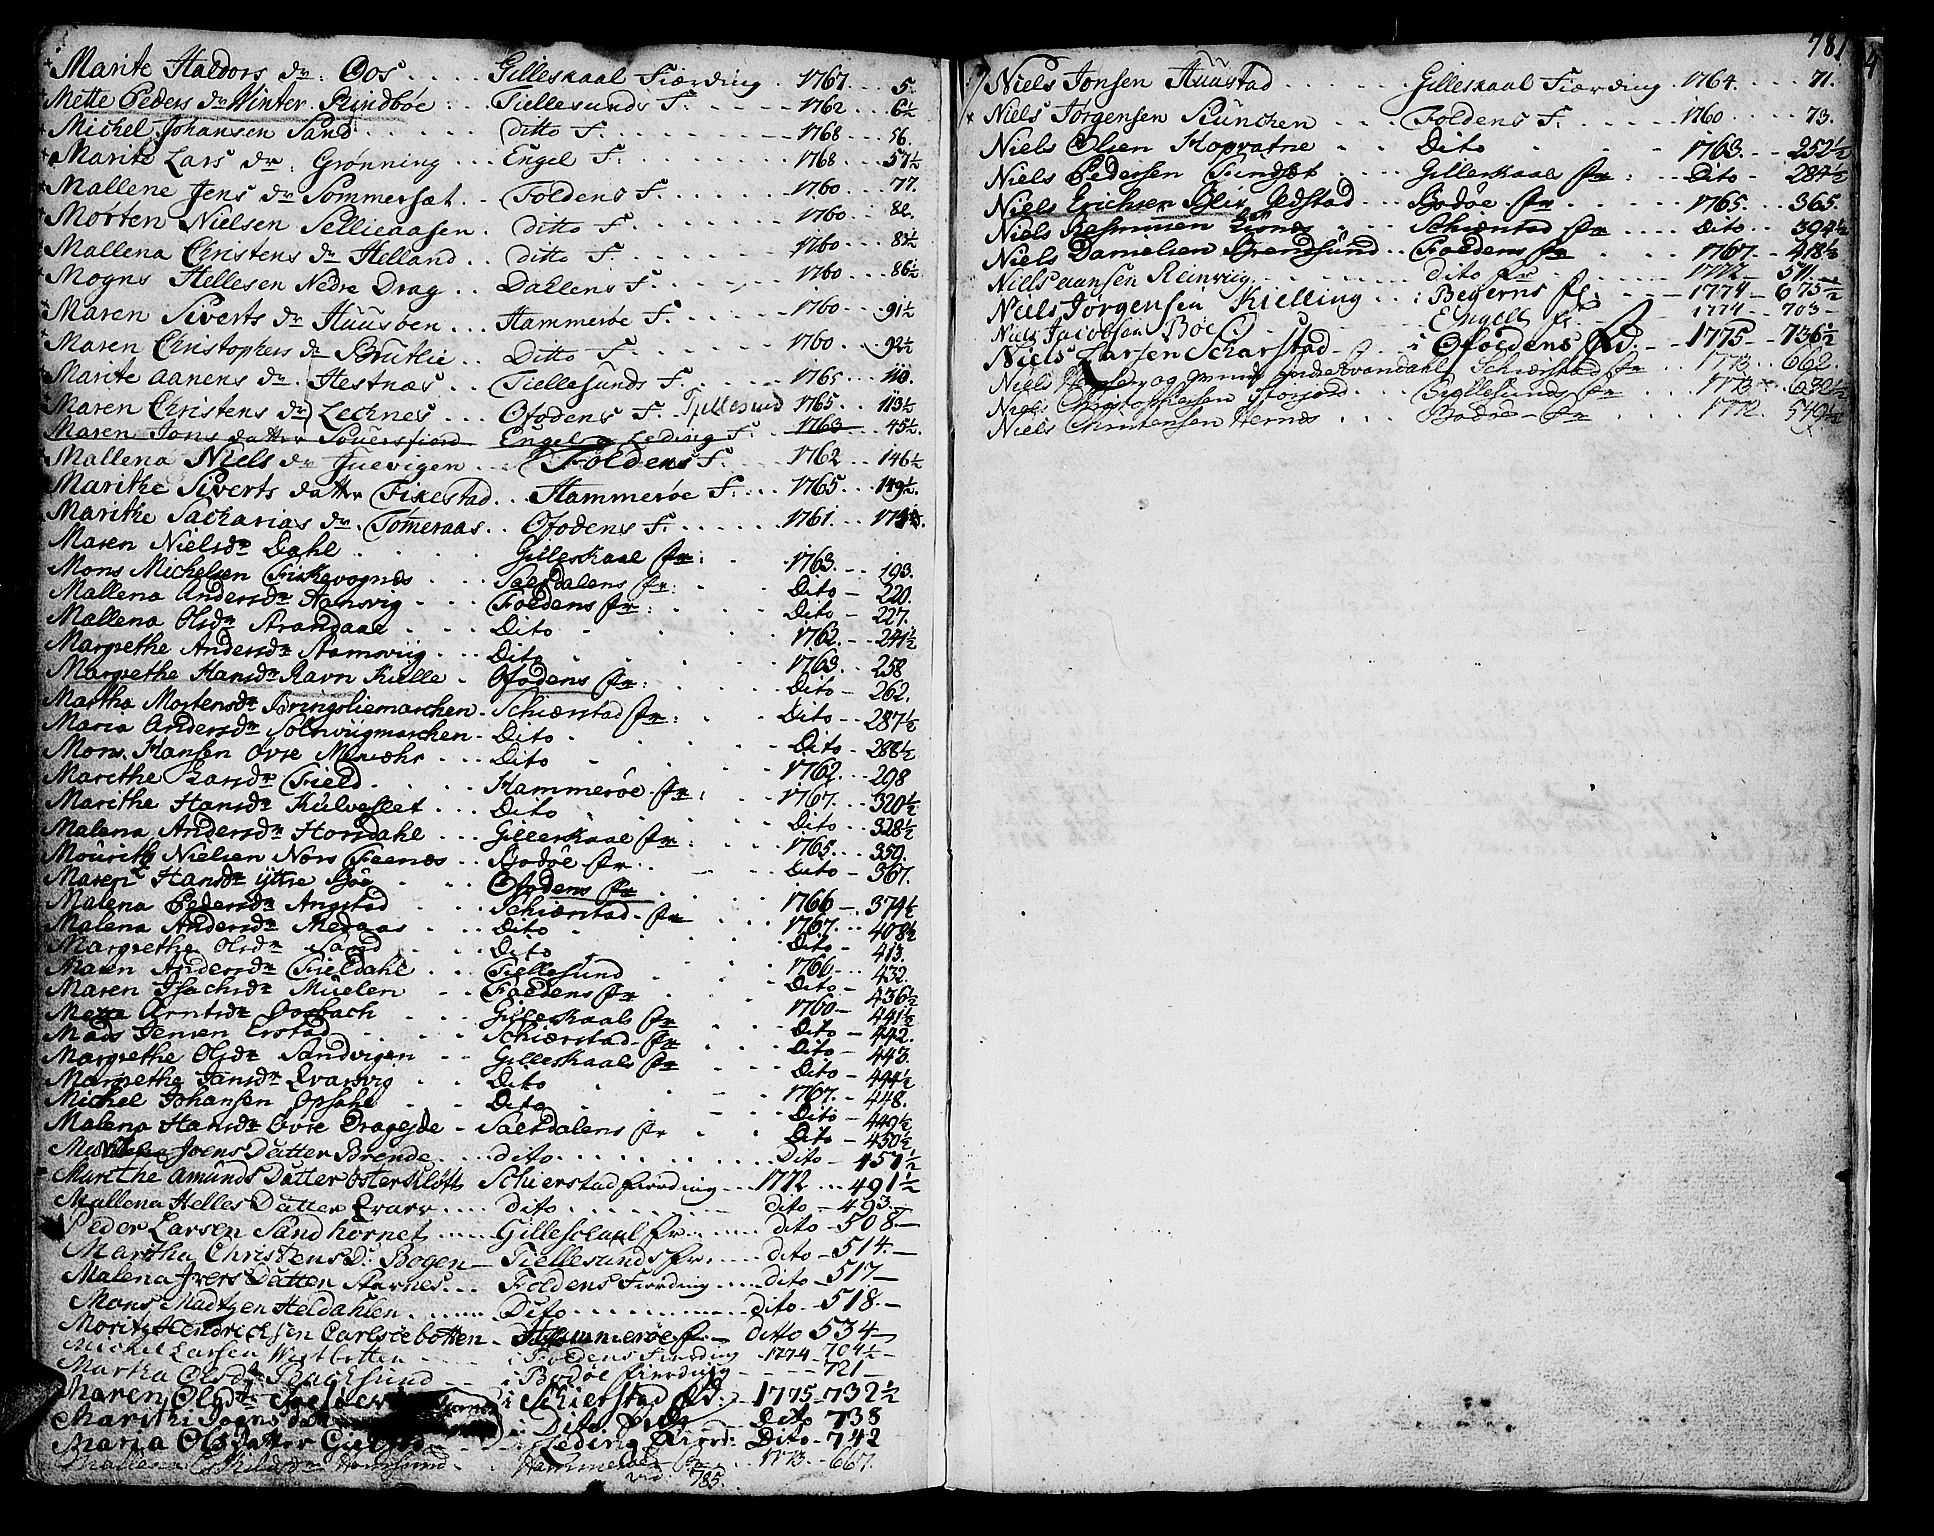 Marite Haldors dr: Oos .... Gilleskaal Fiærding . 1767 .. 5.
Mette Peders dr Winter Rindbøe : . . Tiellesunds F. ..... 1762 ... 6½
Michel Johansen Sand ..... ditto F. ..... 1768 ... 56.
Marite Lars dr: Grønning ... Engel F. ..... 1768 .. 57½
Mallene Jens dr Sommersæt .. Foldens F. ..... 1760 ... 77.
Morten Nielsen Sellieaasen .. ditto F. ..... 1760 ... 82.
Mallena Christens dr Helland .. ditto F. ..... 1760 ... 83½
Mogns Hellesen Nedre Drag .. Dahlens F. ..... 1760 ... 86½
Maren Siverts dr Huusøen .. Hammerøe F. ..... 1760 ... 91½
Maren Christophers dr Brutlie .. Ditto F. ..... 1760 ... 92½
Marite Aanens dr. Hestnæs ... Tiellesunds F. ..... 1765 .. 110.
Maren Christens dr Lechnes ... Ofodens F. Tjellesund 1765 .. 113½
Maren Jons datter Souersfiord Engel Leding F. 1763 .. 45½
Mallena Niels dr Juevigen ... Foldens F. .... 1762 .. 146½
Marithe Siverts datter Fixestad .. Hammerøe F. .... 1765 ... 149½.
Marithe Sacharias dr. Tømeraas .. Ofodens F. ..... 1761 ...
Maren Nielsdr Dahl ..... Gilleskaal fr: . . 1763. .. 193.
Mons Michelsen Fiskevognes ... Saltdalens fr: . Dito — 220.
Mallena Andersdr Hamsvig . - . Foldens fr: . . Dito — 227.
Mallena Olsdr Strandaae . . . Dito . . . 1762. .. 241½
Margrethe Andersdr Stamsviig . . Dito . . . 1763. .. 258
Margrethe Hansdr Ravn Kiille . Ofodens fr: . . Dito — 262.
Martha Mortensdr Soringsliemarchen . Schiærstad fr: . . Dito .. 287½
Maria Andersdr Solnviigmarchen . Dito . . . Dito — 288½
Mons. Hansen Øvre Missvæhr ... Dito . . . 1762. .. 298
Marithe Larsdr Field . . . Hammerøe fr: . . 1767. .. 320½
Marithe Hansdr Kulveslet ... Dito . . . Dito .. 328½
Malena Andersdr Horsdahl ... Gilleskaal fr: . . 1765. .. 359.
Mouritz Nielsen Nors Fieenæs .. Bodøe fr. . . Dito — 367.
Maren Hansdr Yttre Bøe . . Ofodens fr . . 1766 — 374½
Malena Pedersdr Angstad . . . Schiærstad fr . . 1767. .. 408½
Malena Andersdr Medaas . . . Dito . . . Dito — 413.
Margrethe Olsdr Sand . . . Dito . . . 1766 .. 432.
Maren Andersdr Fieldahl . . . Tiellesund . . . Dito — 436½
Maren Isachsdr Miielen . . Foldens fr . . 1760 — 441½
Metta Arntsdr Oosbach . . Gilleskaals fr . . Dito — 442.
Mads Jensen Erstad . . . Schiærstad fr . . Dito — 443.
Margrethe Olsdr Sandvigen . . Gilleskaals fr . . Dito — 444½
Margrethe Jansdr Qvarsvig . . Dito . . . 1767. — 448.
Michel Johansen Opsahl . . . Dito . . — Dito — 449½
Malena Hansdr Øvre Dragejde . Saltdalens fr . . Dito — 450½
Joens Datter Brende .... dito ........ Dito — 457½
Marithe Amunds Datter Østerkløft Schierstad fierding ... 1772 ... 491½
Mallena Helles Datter Qvarv .... dito ...... dito — 493. —
Peder Larsen Sandhornet ..... Gilleskaal fr ..... dito — 508. —
Martha Christens D: Bogen — Tiellesunds fr ..... dito — 514. —
Malena Ivers Datter Starnes ... Foldens Fierding .... dito — 517 —
Mons Madtzen Heldahlen ........ Dito .......... dito — 518. —
Moritz Hendrichsen Carlsøebotten — Hammerøe fr — ditto 534 —
Michel Larsen Westbotten — i Foldens Fierding — 1774 — 704½ —
Martha Olsdr Bachesund — i Bodøe Fierding — — — 721 —
Maren Olsdr i Schierstad Fd. 1775 — 732½
Marithe Joens i Dito Dito 738
Maria Olsdatter i Leding Fiord: Dito — 742
Mallena Hammerøe fr. 1773 — 667.
vid. 785.
781
Niels Jonsen Huustad ..... Gilleskaal Fiærding . 1764. .... 71.
Niels Jørgensen Siünchen ... Foldens F. ..... 1760 ..... 73.
Niels Olsen Kopvatne . . . Dito . . . . 1763. .. 252½
Niels Pedersen Sundsæt .... Gilleskaals fr: . . Dito — 284½
Niels Erichsen Blix Jldstad .. Bodøe fr . . . 1765 ... 365.
Niels Rasmussen Lirnes . . . Schiærstad fr .... Dito .. 394½
Niels Danielsen Brendsund . Foldens fr . . . 1767 .. 418½
Niels Aansen Reinviig ...... dito fr . . . 1772 — 511. —
Niels Jørgensen Kielling ... i Beyerns fr. — 1774 — 675½
Niels Jacobsen Bøe — — Engels fr. — 1774 — 703 —
Niels Larsen Scharstad — i Ofodens Fd. — 1775 — 736½
Niels og Qvandahl Schierstad fr .. 1773 — 662.
Niels Christophersen Storjord ... Tiellesunds fr ... 1773 — 632½
Niels Christensen Hernæs ... Bodøe — fr . . . 1772. 549½